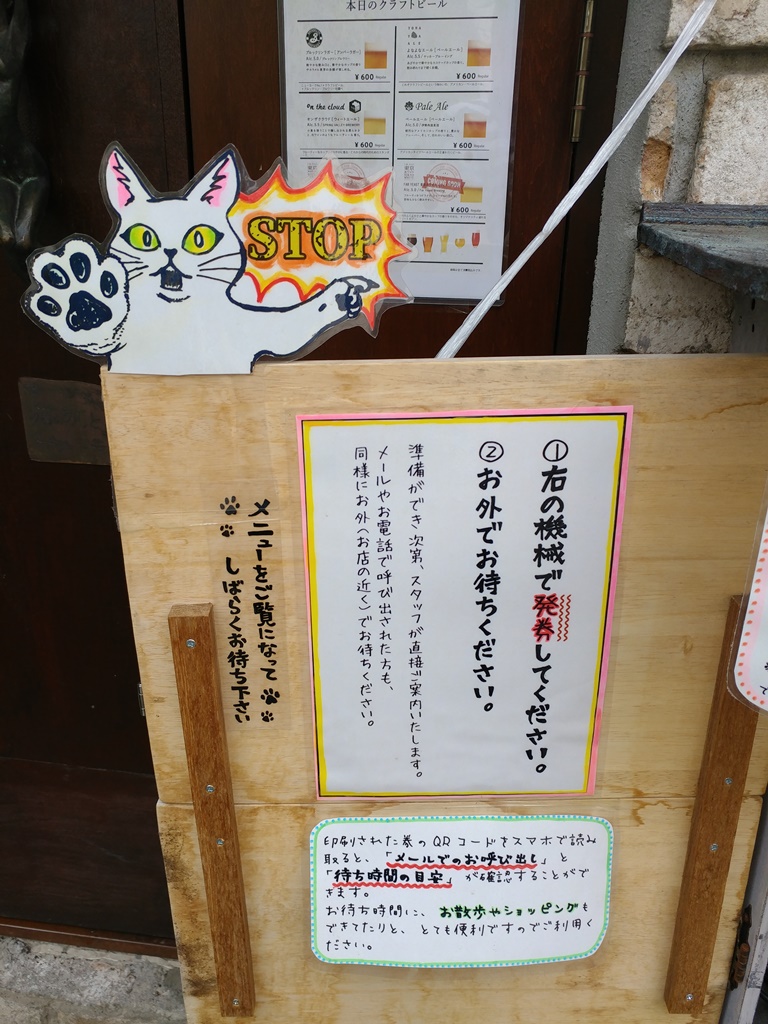 本日のクラフトビール
¥600
¥600
on the cloud
¥600
Pale Ale
¥600
COMING SOON
¥600
STOP
①右の機械で発券してください。
②お外でお待ちください。
準備ができ次第、スタッフが直接ご案内いたします。
メールやお電話で呼び出された方も、
同様にお外(お店の近く)でお待ちください。
メニューをご覧になって
しばらくお待ち下さい
印刷された券のQRコードをスマホで読み
取ると、「メールでのお呼び出し」と
「待ち時間の目安」が確認することがで
きます。
お待ち時間に、お散歩やショッピングも
できてたりと、とても便利ですのでご利用く
ださい。